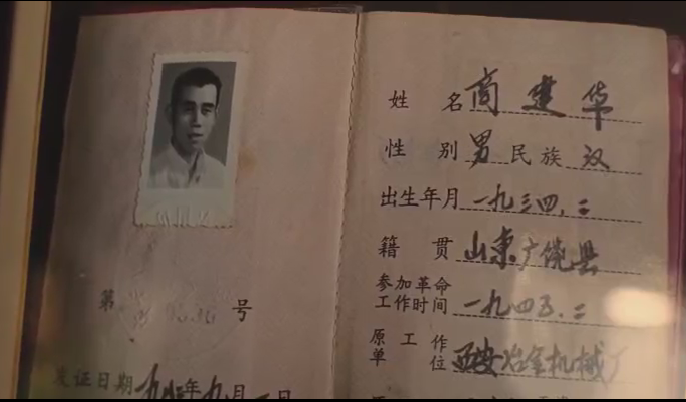 第 号
发证日期 年九月一日
姓名 商建华
性别 男 民族 汉
出生年月 一九三四.二
籍贯 山东广饶县
参加革命
工作时间 一九四五.二
原工作
单位 西安冶金机械厂